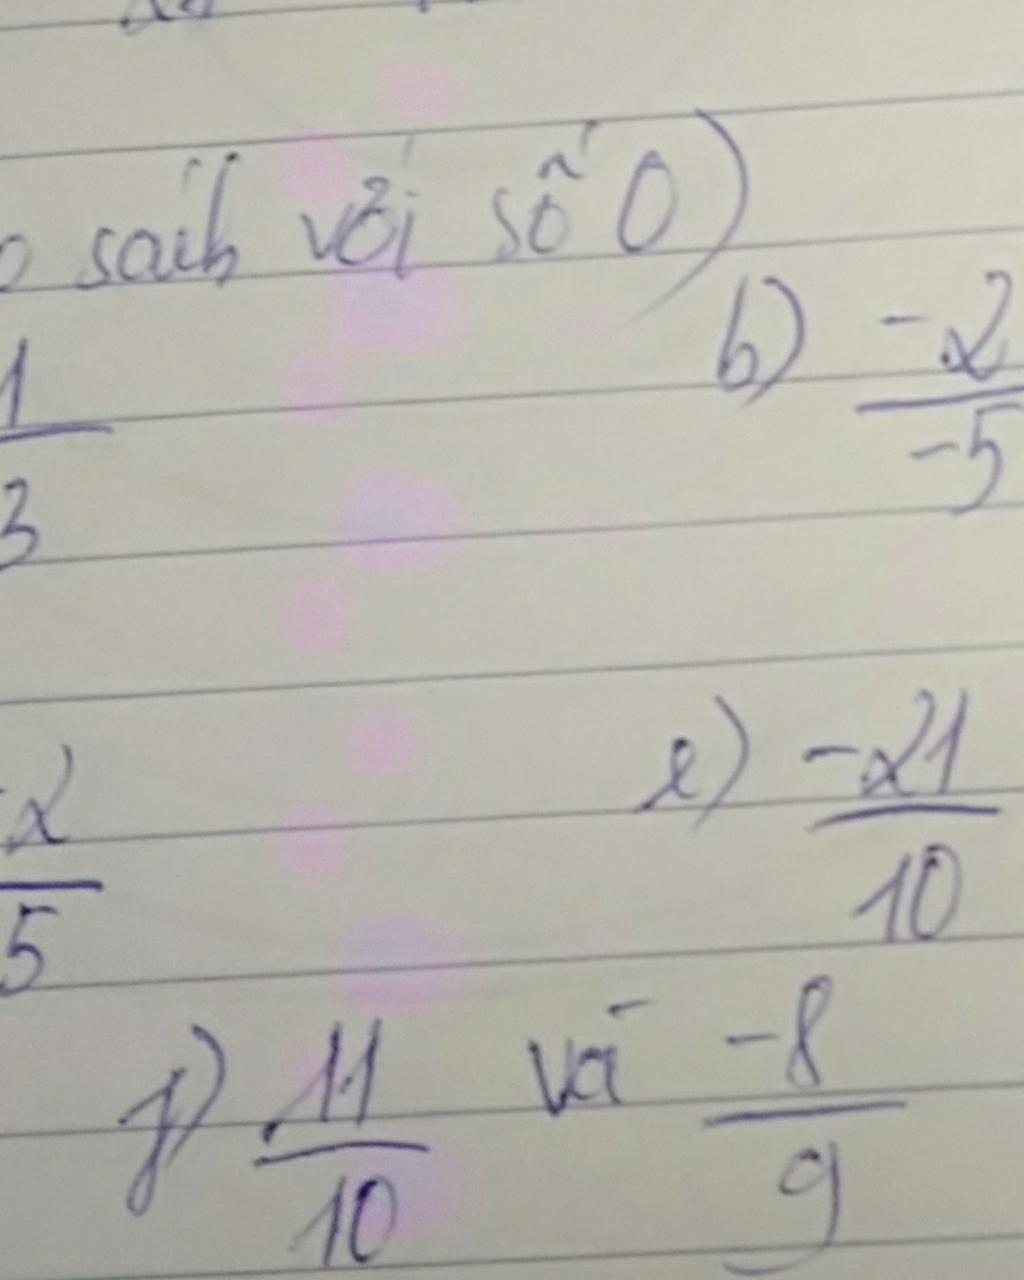 sánh với số 0)
1/3 b) -2/-5
2/5 e) -21/10
f) 11/10 và -8/9